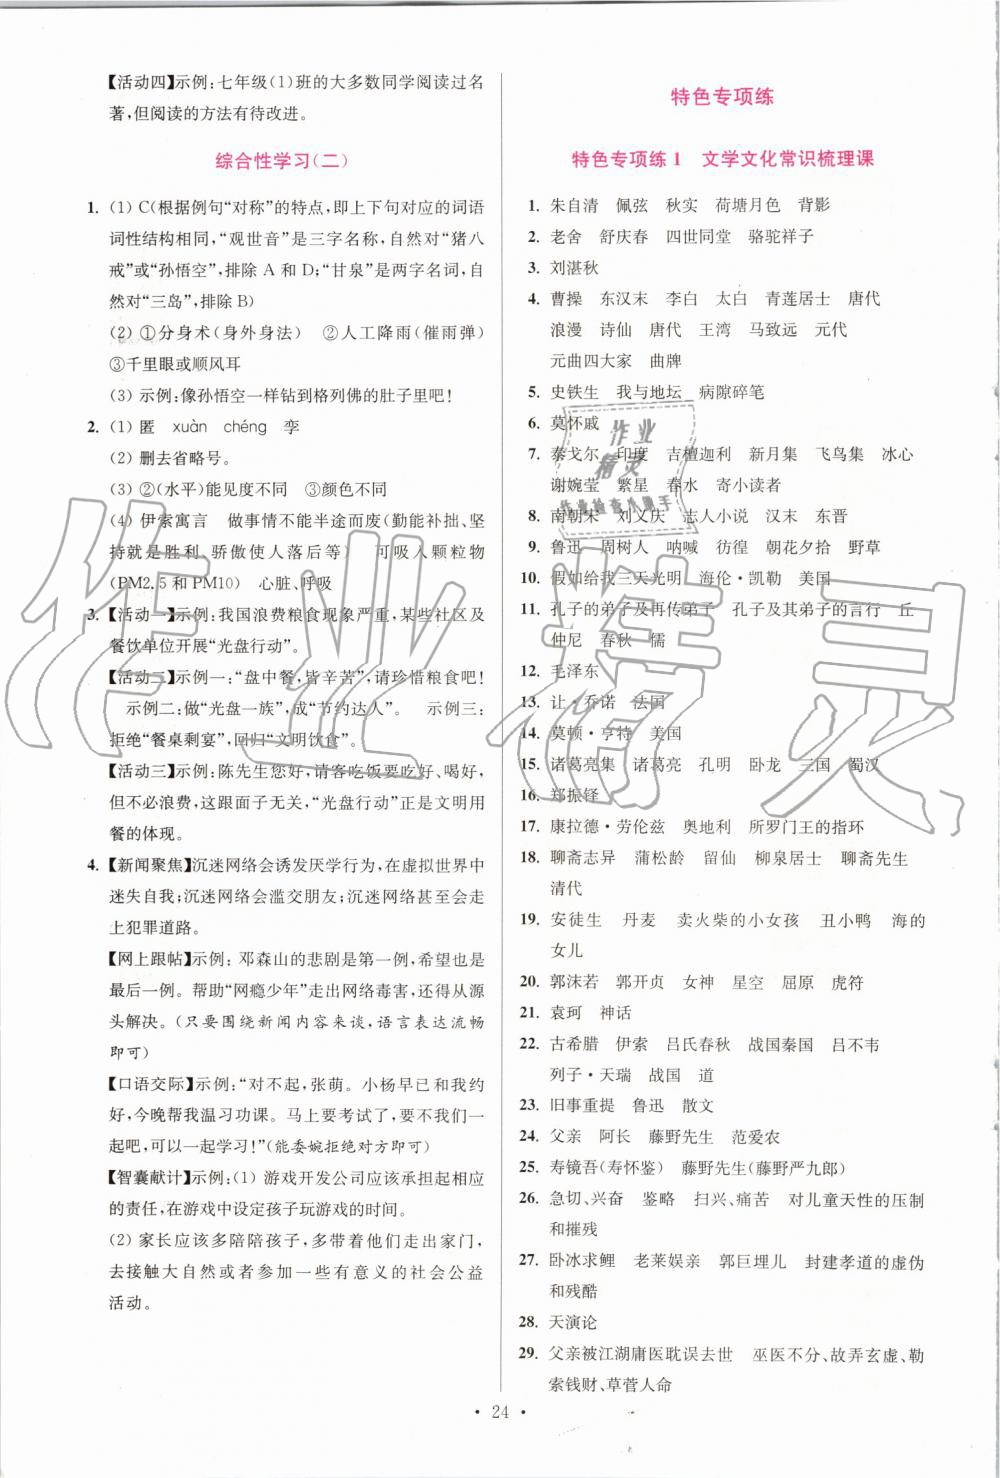 【活动四】示例:七年级(1)班的大多数同学阅读过名
著,但阅读的方法有待改进。
综合性学习(二)
1. (1) C(根据例句“对称”的特点,即上下句对应的词语
词性结构相同,“观世音”是三字名称,自然对“猪八
戒”或“孙悟空”,排除 A 和 D;“甘泉”是两字名词,自
然对“三岛”,排除 B)
(2) ①分身术(身外身法) ②人工降雨(催雨弹)
③千里眼或顺风耳
(3) 示例:像孙悟空一样钻到格列佛的肚子里吧!
2. (1) 匿 xuàn chéng 孪
(2) 删去省略号。
(3) ②(水平)能见度不同 ③颜色不同
(4) 伊索寓言 做事情不能半途而废(勤能补拙、坚
持就是胜利、骄傲使人落后等) 可吸入颗粒物
(PM2.5 和 PM10) 心脏、呼吸
3. 【活动一】示例:我国浪费粮食现象严重,某些社区及
餐饮单位开展“光盘行动”。
【活动二】示例一:“盘中餐,皆辛苦”,请珍惜粮食吧!
示例二:做“光盘一族”,成“节约达人”。 示例三:
拒绝“餐桌剩宴”,回归“文明饮食”。
【活动三】示例:陈先生您好,请客吃饭要吃好、喝好,
但不必浪费,这跟面子无关,“光盘行动”正是文明用
餐的体现。
4. 【新闻聚焦】沉迷网络会诱发厌学行为,在虚拟世界中
迷失自我;沉迷网络会滥交朋友;沉迷网络甚至会走
上犯罪道路。
【网上跟帖】示例:邓森山的悲剧是第一例,希望也是
最后一例。帮助“网瘾少年”走出网络毒害,还得从源
头解决。(只要围绕新闻内容来谈,语言表达流畅
即可)
【口语交际】示例:“对不起,张萌。小杨早已和我约
好,今晚帮我温习功课。马上要考试了,要不我们一
起吧,可以一起学习!”(能委婉拒绝对方即可)
【智囊献计】示例:(1) 游戏开发公司应该承担相应
的责任,在游戏中设定孩子玩游戏的时间。
(2) 家长应该多陪陪孩子,多带着他们走出家门,
去接触大自然或者参加一些有意义的社会公益
活动。
特色专项练
特色专项练 1 文学文化常识梳理课
1. 朱自清 佩弦 秋实 荷塘月色 背影
2. 老舍 舒庆春 四世同堂 骆驼祥子
3. 刘湛秋
4. 曹操 东汉末 李白 太白 青莲居士 唐代
浪漫 诗仙 唐代 王湾 马致远 元代
元曲四大家 曲牌
5. 史铁生 我与地坛 病隙碎笔
6. 莫怀戚
7. 泰戈尔 印度 吉檀迦利 新月集 飞鸟集 冰心
谢婉莹 繁星 春水 寄小读者
8. 南朝宋 刘义庆 志人小说 汉末 东晋
9. 鲁迅 周树人 呐喊 彷徨 朝花夕拾 野草
10. 假如给我三天光明 海伦·凯勒 美国
11. 孔子的弟子及再传弟子 孔子及其弟子的言行 丘
仲尼 春秋 儒
12. 毛泽东
13. 让·乔诺 法国
14. 莫顿·亨特 美国
15. 诸葛亮集 诸葛亮 孔明 卧龙 三国 蜀汉
16. 郑振铎
17. 康拉德·劳伦兹 奥地利 所罗门王的指环
18. 聊斋志异 蒲松龄 留仙 柳泉居士 聊斋先生
清代
19. 安徒生 丹麦 卖火柴的小女孩 丑小鸭 海的
女儿
20. 郭沫若 郭开贞 女神 星空 屈原 虎符
21. 袁珂 神话
22. 古希腊 伊索 吕氏春秋 战国秦国 吕不韦
列子·天瑞 战国 道
23. 旧事重提 鲁迅 散文
24. 父亲 阿长 藤野先生 范爱农
25. 寿镜吾(寿怀鉴) 藤野先生(藤野严九郎)
26. 急切、兴奋 鉴略 扫兴、痛苦 对儿童天性的压制
和摧残
27. 卧冰求鲤 老莱娱亲 郭巨埋儿 封建孝道的虚伪
和残酷
28. 天演论
29. 父亲被江湖庸医耽误去世 巫医不分、故弄玄虚、勒
索钱财、草菅人命
作业
精灵
作业检查小助手
作业精灵
· 24 ·